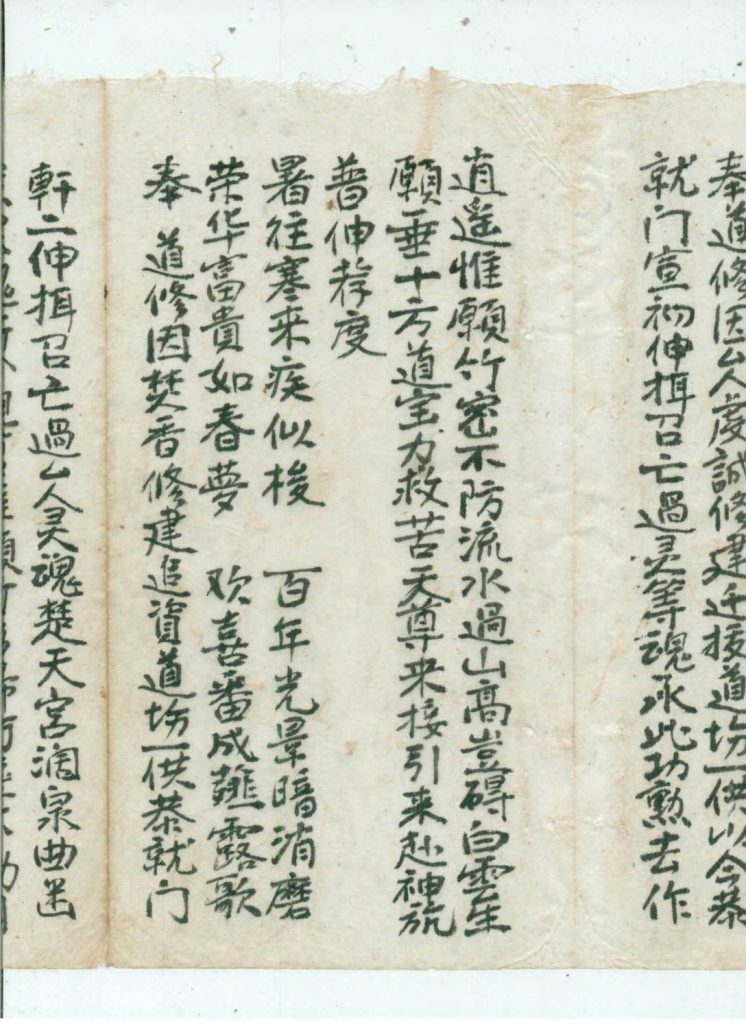 奉道修因厶人虔誠修建迁拔道塲一供以今恭
就门宣初伸揖召亡過灵等魂承此功勲去作
逍遥惟願竹密不防流水過山高豈碍白雲生
願垂十方道宝力救苦天尊来接引来赴神旐
普伸荐度
暑往寒来疾似梭　百年光景暗消磨
荣华富貴如春夢　欢喜番成薤露歌
奉　道修因焚香修建追資道塲一供恭就门
軒二伸揖召亡過厶人灵魂楚天宫濶泉曲